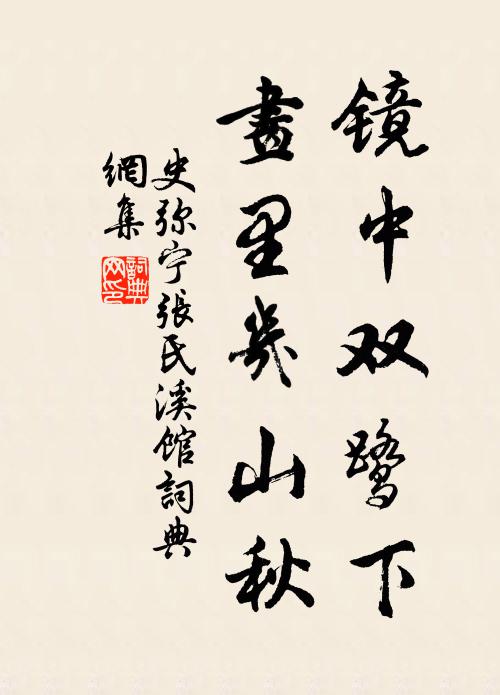 镜中双鹭下
畫里幾山秋
史弥宁張氏溪馆詞典
網集
詞典網印